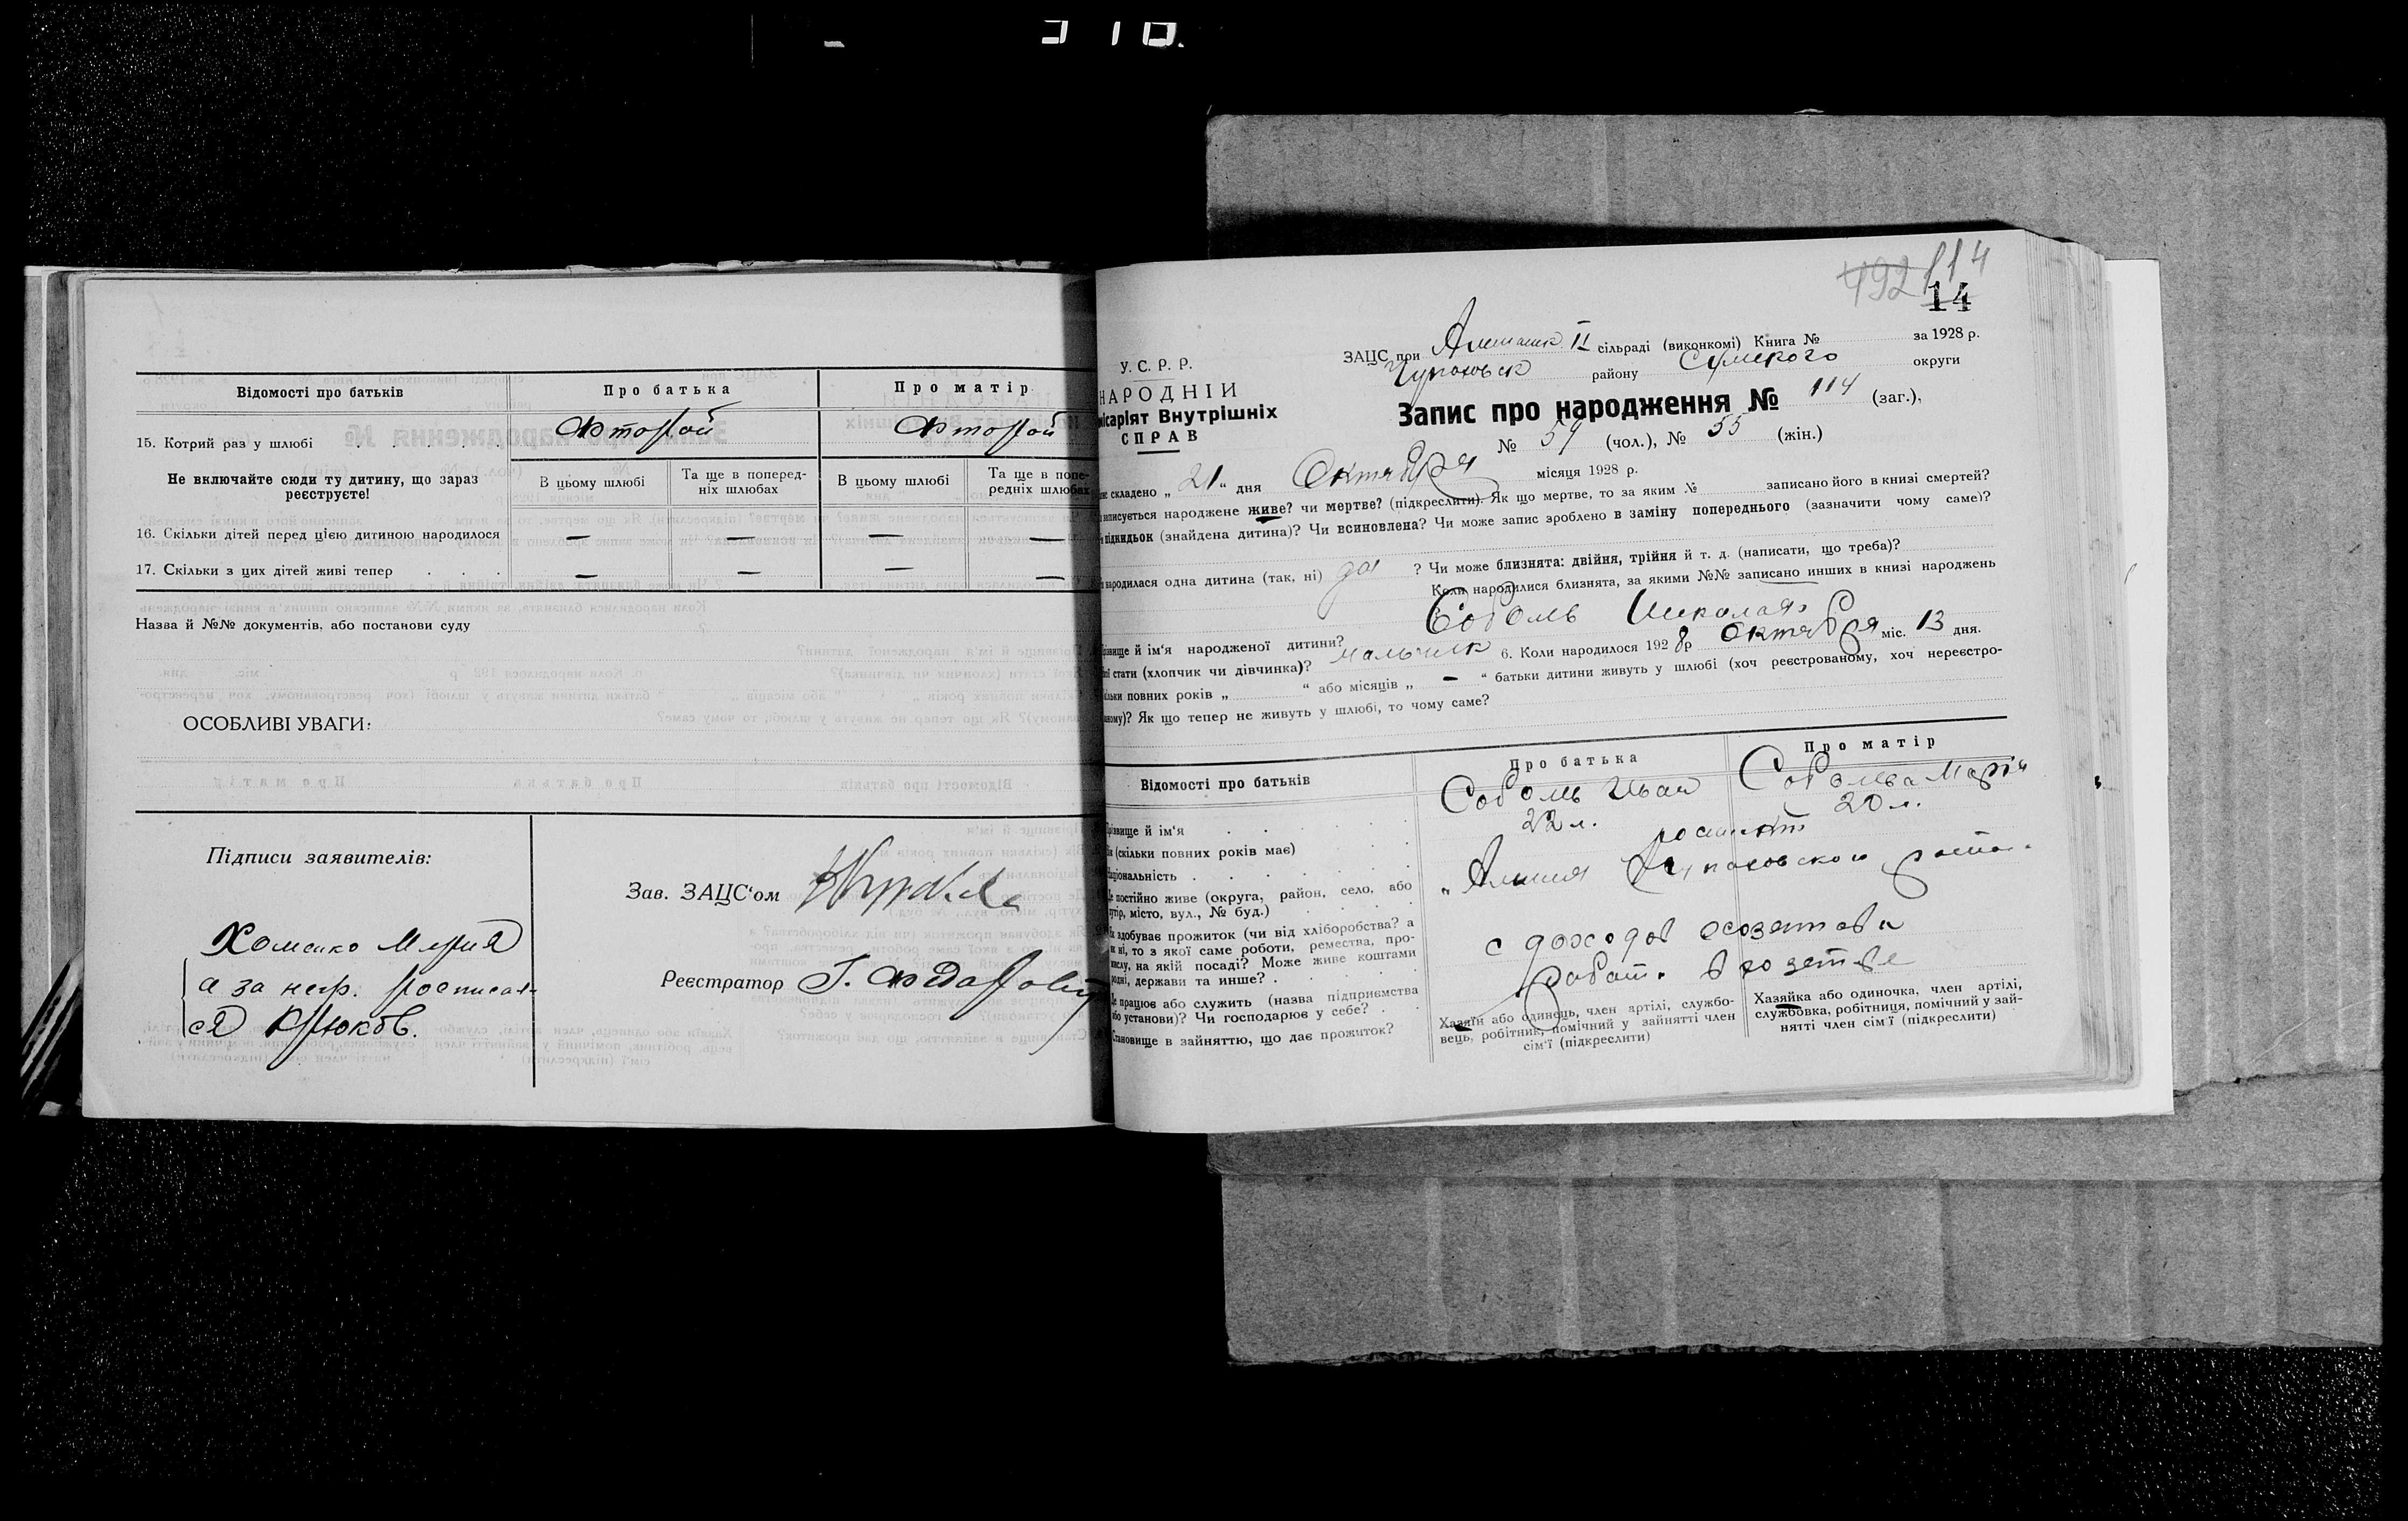 Відомості про батьків
Про батька
Про матір
15. Котрий раз у шлюбі
Второй
Второй
Не включайте сюди ту дитину, що зараз
реєструєте!
В цьому шлюбі
Та ще в поперед-
ніх шлюбах
В цьому шлюбі
Та ще в попе-
редніх шлюбах
16. Скільки дітей перед цією дитиною народилося
— — — —
17. Скільки з цих дітей живі тепер
— — — —
Назва й №№ документів, або постанови суду
ОСОБЛИВІ УВАГИ:
Підписи заявителів:
Хоменко Мария
а за негр. росписал-
ся Крюков.
Зав. ЗАЦС‘ом
Реєстратор Г.
492 114
14
У. С. Р. Р.
НАРОДНІЙ
місаріят Внутрішніх
СПРАВ
ЗАЦС при II сільраді (виконкомі) Книга № за 1928 р.
району Сумского округи
Запис про народження № 114 (заг.),
№ 59 (чол.), № 55 (жін.)
складено „ 21 “ дня Октября місяця 1928 р.
записується народжене живе? чи мертве? (підкреслити). Як що мертве, то за яким № записано його в книзі смертей?
підкидьок (знайдена дитина)? Чи всиновлена? Чи може запис зроблено в заміну попереднього (зазначити чому саме)?
народилася одна дитина (так, ні) да ? Чи може близнята: двійня, трійня й т. д. (написати, що треба)?
Коли народилися близнята, за якими №№ записано инших в книзі народжень
Соболь Николай
звище й ім‘я народженої дитини?
стати (хлопчик чи дівчинка)? мальчик 6. Коли народилося 1928 р Октября міс. 13 дня.
повних років „ “ або місяців „ — “ батьки дитини живуть у шлюбі (хоч реєстрованому, хоч нереєстро-
ному)? Як що тепер не живуть у шлюбі, то чому саме?
Відомості про батьків
Про батька
Про матір
звище й ім‘я
Соболь Иван
Соболева Мария
(скільки повних років має)
22 л.
20 л.
ціональність
постійно живе (округа, район, село, або
тір, місто, вул., № буд.)
здобуває прожиток (чи від хліборобства? а
ні, то з якої саме роботи, ремества, про-
мислу, на якій посаді? Може живе коштами
родні, держави та инше?
с доходов
працює або служить (назва підприємства
або установи)? Чи господарює у себе?
Становище в зайняттю, що дає прожиток?
Хазяїн або одинець, член артілі, службо-
вець, робітник, помічний у зайнятті член
сім‘ї (підкреслити)
Хазяйка або одиночка, член артілі,
службовка, робітниця, помічний у зай-
нятті член сім‘ї (підкреслити)